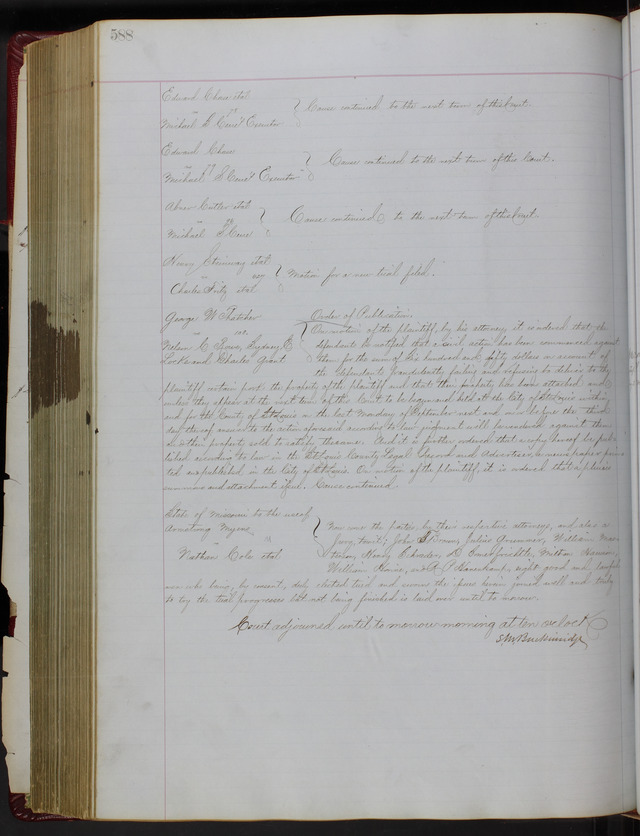 588
Edward Chase etal
vs
Michael S Cerré Executor } Cause continued to the next term of this Court.
Edward Chase
vs
Michael S Cerré Executor } Cause continued to the next term of this Court.
Abner Cutter etal
vs
Michael S Cerré } Cause continued to the next term of this Court.
Henry Steinway etal
vs
Charles Fritz etal } Motion for a new trial filed.
George W Thatcher
vs
Nelson C
Charles Grant
Order of Publication.
On motion of the plaintiff, by his attorney it is ordered that the
defendants be notified that a civil action has been commenced against
them for the sum of six hundred and fifty dollars on account of
the defendants fraudulently failing and refusing to deliver to the
plaintiff certain pork the property of the plaintiff and that their property has been attached and
unless they appear at the next term of this Court to be begun and held at the City of St Louis within
and for the County of St Louis on the last Monday of September next and on or before the third
day thereof answer to the action aforesaid according to law judgment will be rendered against them
and their property sold to satisfy the same. And it is further ordered that a copy hereof be pub
lished according to law in the St Louis County Legal Record and Advertiser, a newspaper prin
ted and published in the City of St Louis. On motion of the plaintiff, it is ordered that a pluries
summons and attachment issue. Cause continued.
State of Missouri to the use of
Armstrong Myers
vs
Nathan Cole etal
} Now come the parties by their respective attorneys, and also a
Jury, towit; John S Brown, Julius William
Henry Milton
William and right good and lawful
men who being, by consent, duly elected tried and sworn the issue herein joined well and truly
to try the trial progresses but not being finished is laid over until to morrow.
Court adjourned until to morrow morning at ten oclock
S. M. Breckinridge